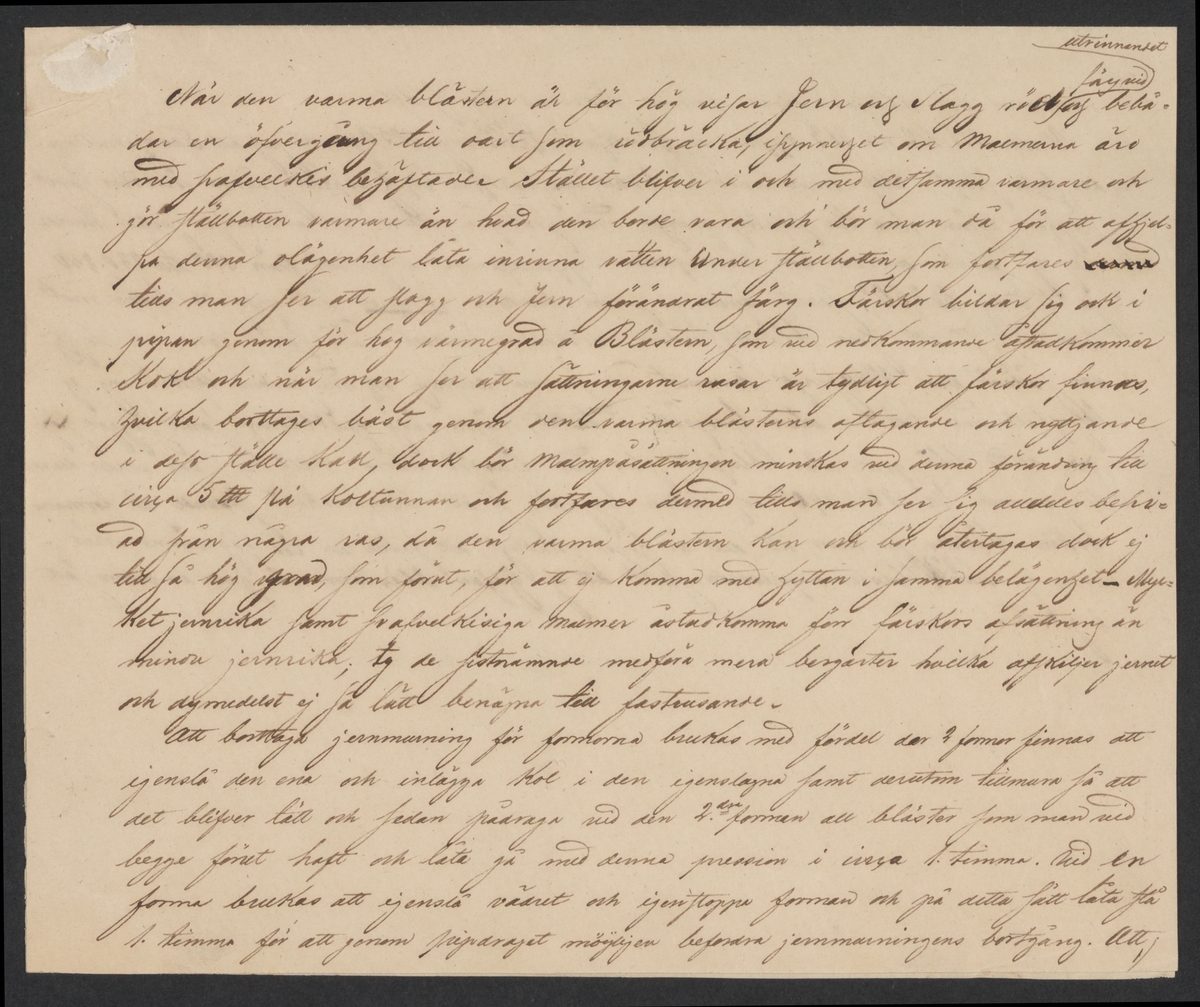 utrinnandet
färg vid
När den varma blästern är för hög visar Jern och Slagg röd och bebå-
dar en öfvergång till vart som rödbräcka, isynnerhet om Malmerna äro
med svafvelkis behäftade. Stället blifver i och med detsamma varmare och
gör ställbotten varmare än hvad den borde vara och bör man då för att afhjel-
pa denna olägenhet låta inrinna vatten under ställbotten, som fortfares
tills man ser att slagg och Jern förändrat färg. Färskor bildar sig ock i
pipan genom för hög värmegrad å Blästern, som vid nedkommande åstadkommer
Kok och när man ser att sättningarne rasar är tydligt att färskor finnas,
hvilka borttages bäst genom den varma blästerns aftagande och nyttjande
i dess ställe Kall, dock bör Malmpåsättningen minskas vid denna förändring till
cirka 5 ℔ på Koltunnan och fortfares dermed tills man ser sig alldeles befri-
ad från några ras, då den varma blästern kan och bör återtagas dock ej
till så hög grad, som förut, för att ej komma med hyttan i samma belägenhet – Myc-
ket jernrika samt svafvelkisiga malmer åstadkomma förr färskors afsättning än
mindre jernrika; ty de sistnämnde medföra mera bergarter hvilka afskiljer jernet
och dymedelst ej så lätt benägna till fastnusande.
Att borttaga jernmurning för formorna brukas med fördel der 2 formor finnas att
igenslå den ena och inlägga Kol i den igenslagna samt derutom tillmura så att
det blifver tätt och sedan pådraga vid den 2.dre forman all bläster som man vid
begge förut haft och låta gå med denna pression i cirka 1. timma. Vid en
forma brukas att igenslå vädret och igenstoppa forman och på detta sätt låta stå
1. timma för att genom pipdraget möjligen befordra jernmurningens bortgång. Att